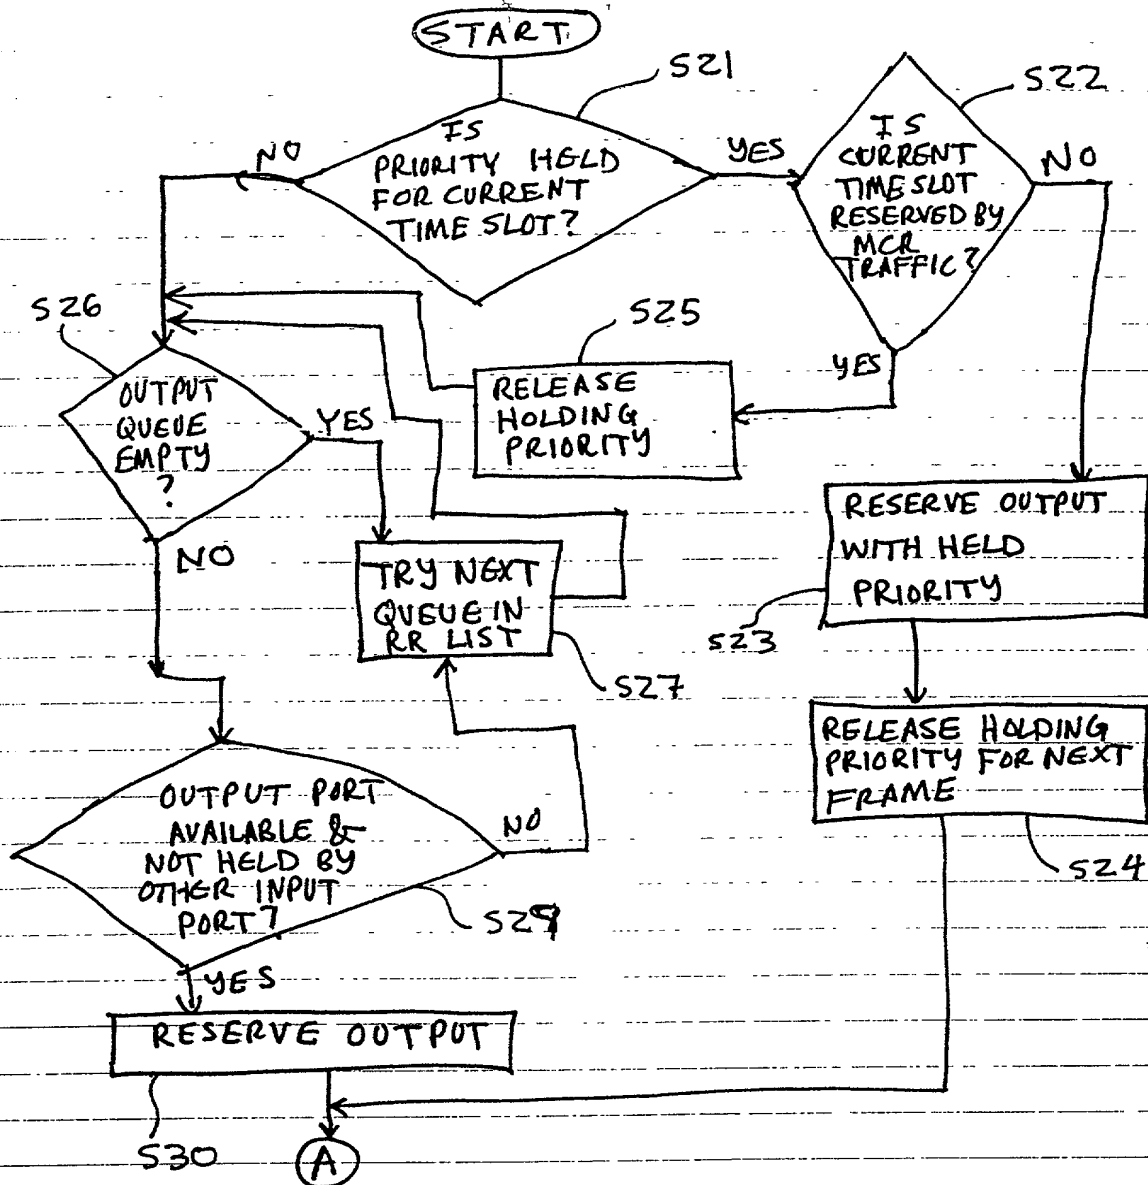 START
S21
IS
PRIORITY HELD
FOR CURRENT
TIME SLOT?
NO
YES
S22
IS
CURRENT
TIME SLOT
RESERVED BY
MCR
TRAFFIC?
NO
YES
S25
RELEASE
HOLDING
PRIORITY
S26
OUTPUT
QUEUE
EMPTY
?
YES
NO
TRY NEXT
QUEUE IN
RR LIST
S27
RESERVE OUTPUT
WITH HELD
PRIORITY
S23
RELEASE HOLDING
PRIORITY FOR NEXT
FRAME
S24
OUTPUT PORT
AVAILABLE &
NOT HELD BY
OTHER INPUT
PORT?
NO
S29
YES
RESERVE OUTPUT
S30
A